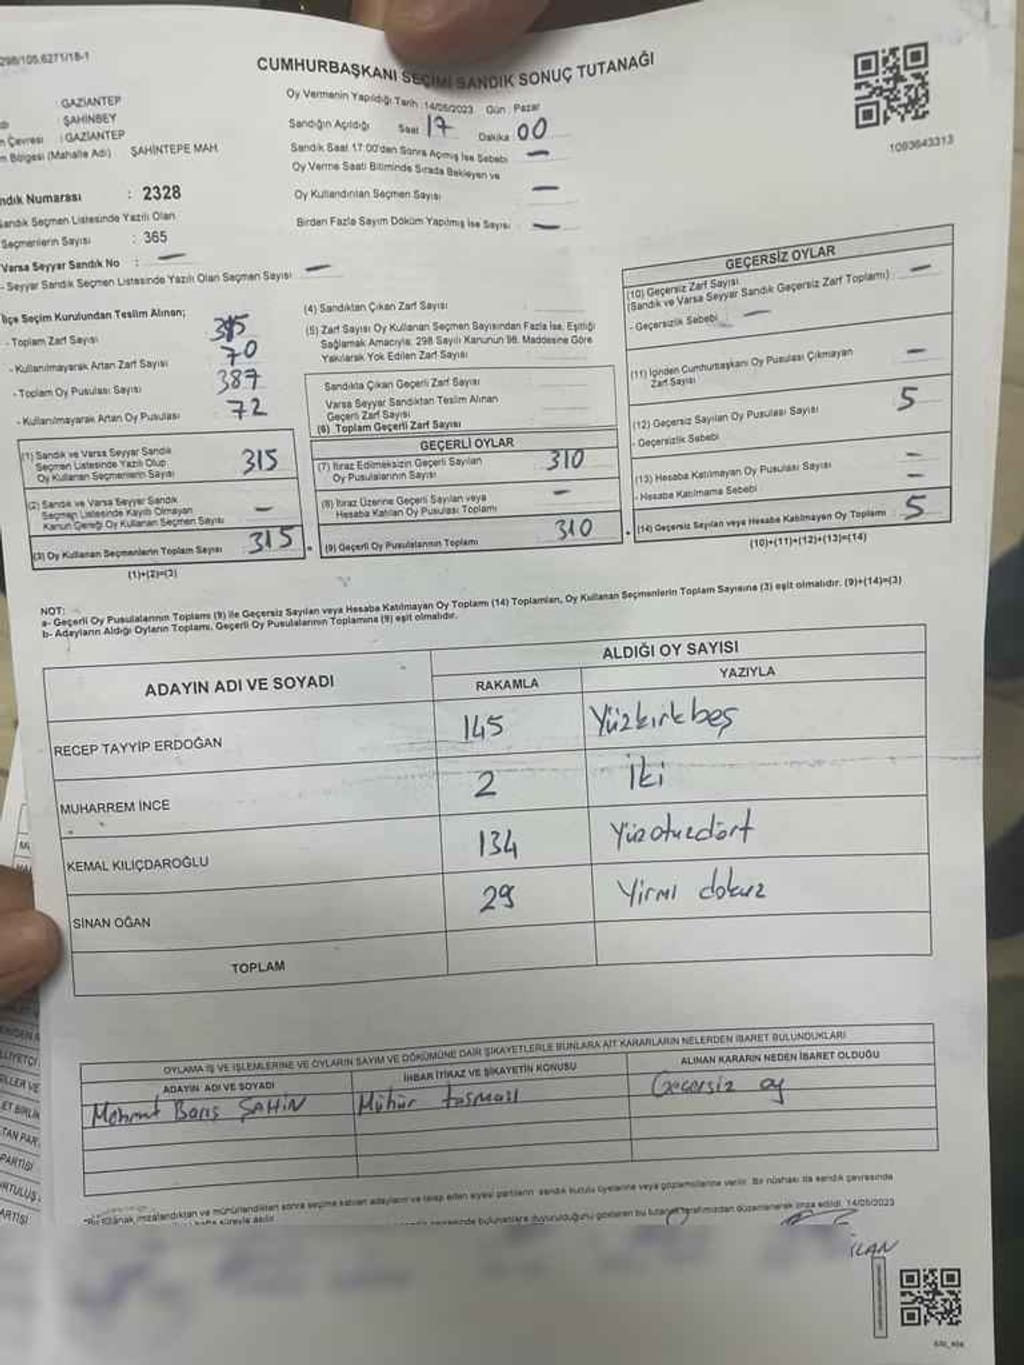 298/105.6271/18-1
CUMHURBAŞKANI SEÇİMİ SANDIK SONUÇ TUTANAĞI
: GAZİANTEP
: ŞAHİNBEY
n Çevresi : GAZİANTEP
n Bölgesi (Mahalle Adı) ŞAHİNTEPE MAH.
Oy Vermenin Yapıldığı Tarih : 14/05/2023 Gün : Pazar
Sandığın Açıldığı Saat 17 Dakika 00
Sandık Saat 17:00'den Sonra Açılmış İse Sebebi —
Oy Verme Saati Bitiminde Sırada Bekleyen ve
Oy Kullandırılan Seçmen Sayısı —
Birden Fazla Sayım Döküm Yapılmış İse Sayısı —
1093643313
ndık Numarası : 2328
Sandık Seçmen Listesinde Yazılı Olan
Seçmenlerin Sayısı : 365
Varsa Seyyar Sandık No : —
- Seyyar Sandık Seçmen Listesinde Yazılı Olan Seçmen Sayısı —
İlçe Seçim Kurulundan Teslim Alınan;
- Toplam Zarf Sayısı
- Kullanılmayarak Artan Zarf Sayısı 70
- Toplam Oy Pusulası Sayısı 387
- Kullanılmayarak Artan Oy Pusulası 72
(1) Sandık ve Varsa Seyyar Sandık
Seçmen Listesinde Yazılı Olup
Oy Kullanan Seçmenlerin Sayısı 315
(2) Sandık ve Varsa Seyyar Sandık
Seçmen Listesinde Kayıtlı Olmayan
Kanun Gereği Oy Kullanan Seçmen Sayısı —
(3) Oy Kullanan Seçmenlerin Toplam Sayısı 315
(1)+(2)=(3)
(4) Sandıktan Çıkan Zarf Sayısı
(5) Zarf Sayısı Oy Kullanan Seçmen Sayısından Fazla İse, Eşitliği
Sağlamak Amacıyla, 298 Sayılı Kanunun 98. Maddesine Göre
Yakılarak Yok Edilen Zarf Sayısı
Sandıkta Çıkan Geçerli Zarf Sayısı
Varsa Seyyar Sandıktan Teslim Alınan
Geçerli Zarf Sayısı
(6) Toplam Geçerli Zarf Sayısı
GEÇERLİ OYLAR
(7) İtiraz Edilmeksizin Geçerli Sayılan
Oy Pusulalarının Sayısı 310
(8) İtiraz Üzerine Geçerli Sayılan veya
Hesaba Katılan Oy Pusulası Toplamı —
(9) Geçerli Oy Pusulalarının Toplamı 310
GEÇERSİZ OYLAR
(10) Geçersiz Zarf Sayısı
(Sandık ve Varsa Seyyar Sandık Geçersiz Zarf Toplamı) —
- Geçersizlik Sebebi —
(11) İçinden Cumhurbaşkanı Oy Pusulası Çıkmayan
Zarf Sayısı —
(12) Geçersiz Sayılan Oy Pusulası Sayısı 5
- Geçersizlik Sebebi
(13) Hesaba Katılmayan Oy Pusulası Sayısı —
- Hesaba Katılmama Sebebi —
(14) Geçersiz Sayılan veya Hesaba Katılmayan Oy Toplamı 5
(10)+(11)+(12)+(13)=(14)
NOT:
a- Geçerli Oy Pusulalarının Toplamı (9) ile Geçersiz Sayılan veya Hesaba Katılmayan Oy Toplamı (14) Toplamları, Oy Kullanan Seçmenlerin Toplam Sayısına (3) eşit olmalıdır. (9)+(14)=(3)
b- Adayların Aldığı Oyların Toplamı, Geçerli Oy Pusulalarının Toplamına (9) eşit olmalıdır.
ADAYIN ADI VE SOYADI
ALDIĞI OY SAYISI
RAKAMLA YAZIYLA
RECEP TAYYİP ERDOĞAN 145 Yüzkırkbeş
MUHARREM İNCE 2 İki
KEMAL KILIÇDAROĞLU 134 Yüzotuzdört
SİNAN OĞAN 29 Yirmi dokuz
TOPLAM
OYLAMA İŞ VE İŞLEMLERİNE VE OYLARIN SAYIM VE DÖKÜMÜNE DAİR ŞİKAYETLERLE BUNLARA AİT KARARLARIN NELERDEN İBARET BULUNDUKLARI
ADAYIN ADI VE SOYADI İHBAR İTİRAZ VE ŞİKAYETİN KONUSU ALINAN KARARIN NEDEN İBARET OLDUĞU
Mehmet Barış ŞAHİN Mühür taşması Geçersiz oy
14/05/2023
İLAN